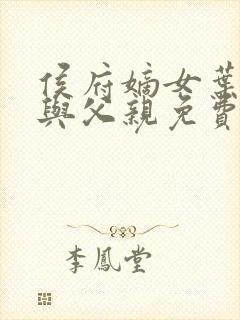 侯府嫡女葉
與父親免費
李鳳堂